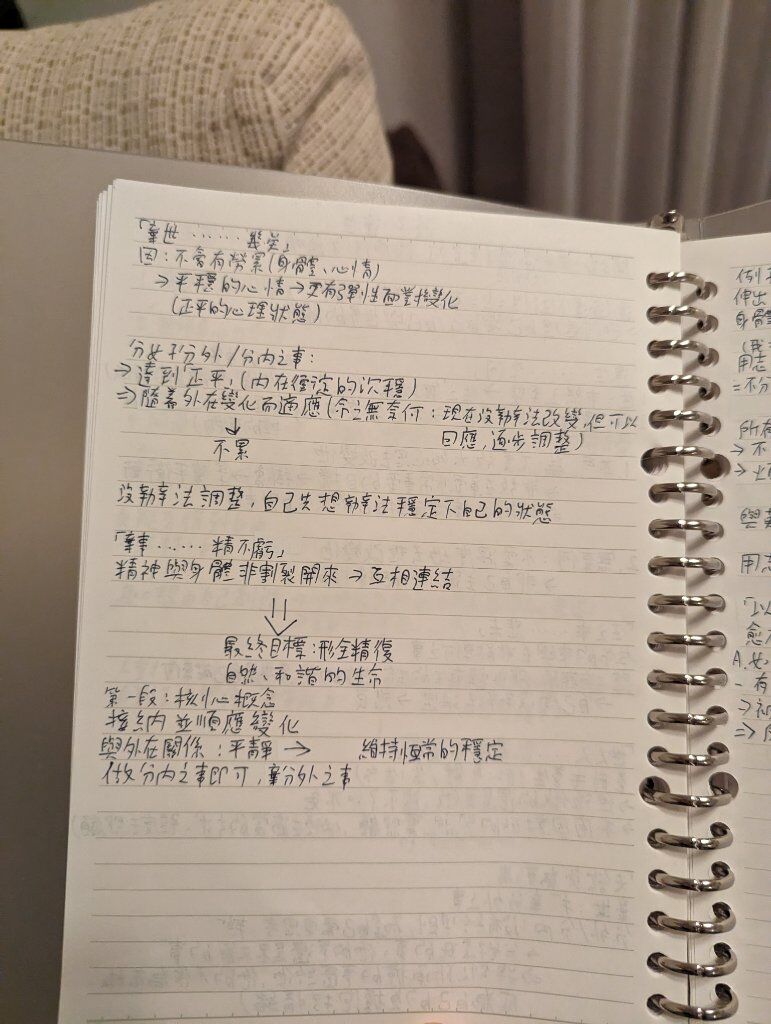 「棄世……幾矣」
因：不會有勞累(身體、心情)
→平穩的心情→更有彈性面對變化
(正平的心理狀態)
分外/分內之事：
→達到「正平」(內在穩定的沉穩)
⇒隨着外在變化而適應(命之無奈何：現在沒辦法改變，但可以
回應，逐步調整)
↓
不累
沒辦法調整，自己先想辦法穩定下自己的狀態
「棄事……精不虧」
精神與身體非割裂開來→互相連結
⇓
最終目標：形全精復
自然、和諧的生命
第一段：核心概念
接納並順應變化
與外在關係：平靜→ 維持恒常的穩定
做分內之事即可，棄分外之事
例
伸出
身體
(我
用志
=不分
所有
→不
→
與
用志
「以
愈
A.
-有
→
⇒